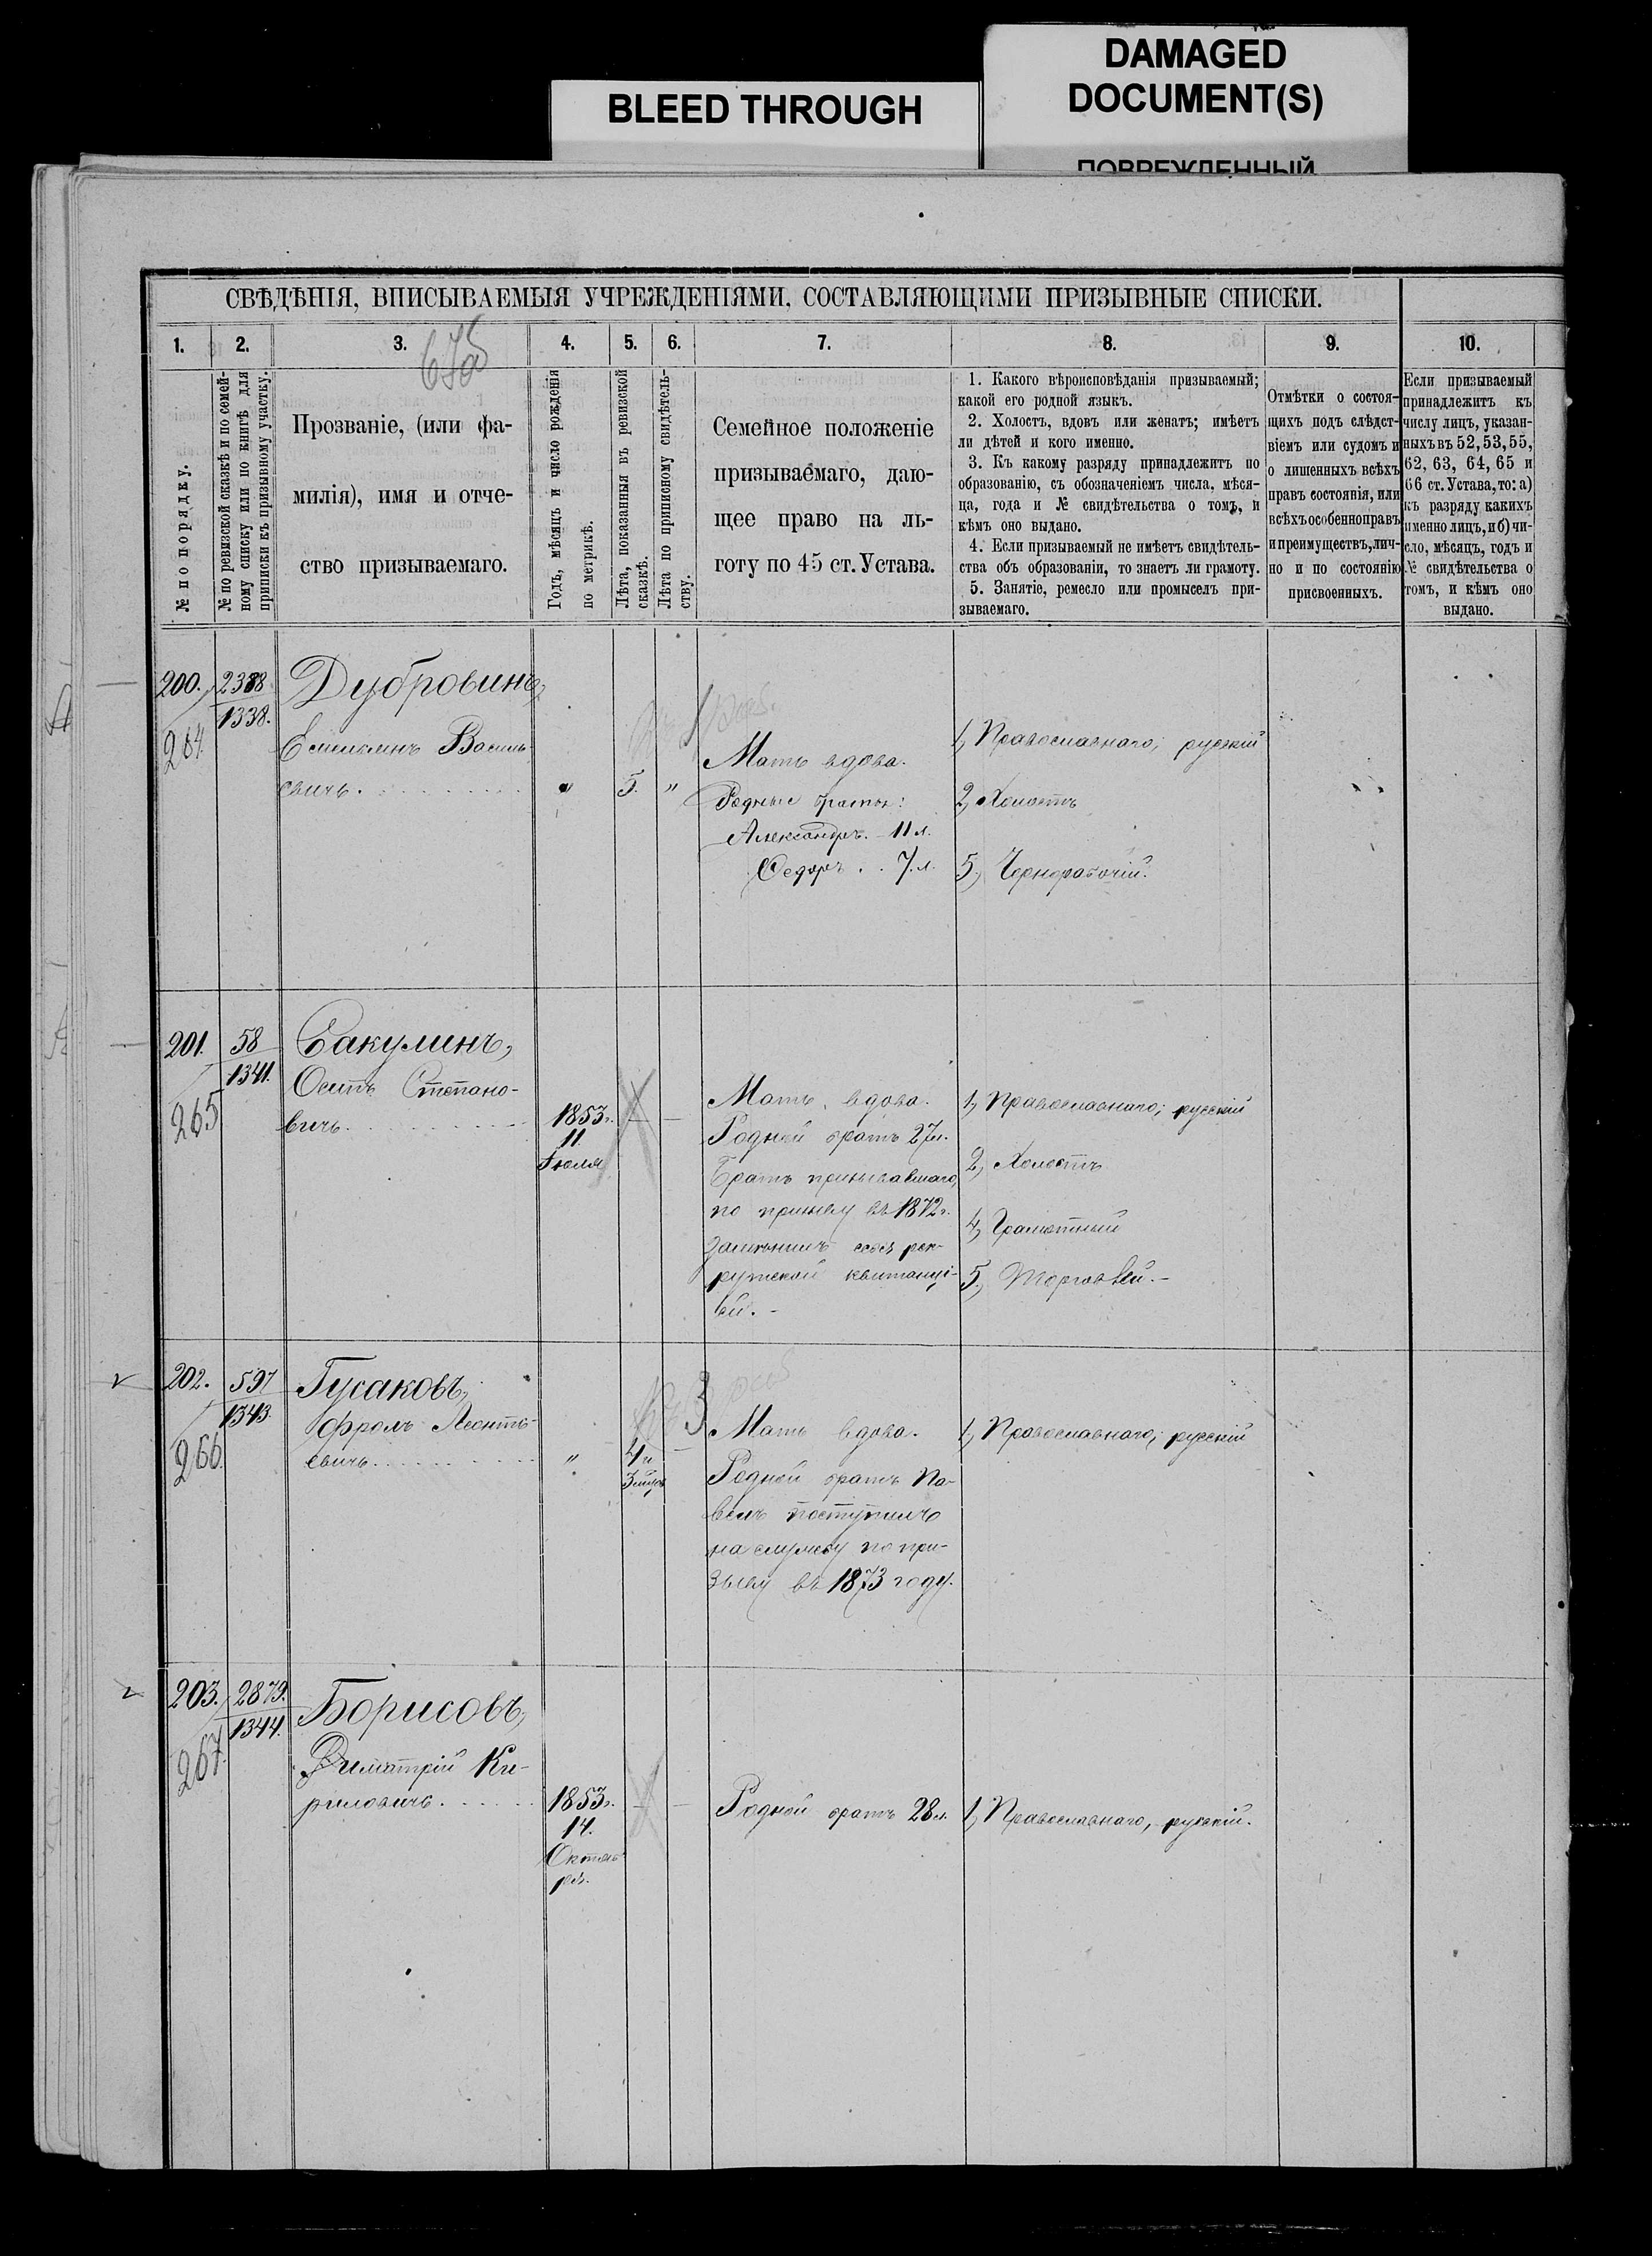 BLEED THROUGH
DAMAGED
DOCUMENT(S)
ПОВРЕЖДЕННЫЙ
СВѢДѢНІЯ, ВПИСЫВАЕМЫЯ УЧРЕЖДЕНІЯМИ, СОСТАВЛЯЮЩИМИ ПРИЗЫВНЫЕ СПИСКИ.
1. 2. 3. 4. 5. 6. 7. 8. 9. 10.
№ по порядку.
№ по ревизской сказкѣ и по семей-
ному списку или по книгѣ для
приписки къ призывному участку.
Прозваніе, (или фа-
милія), имя и отче-
ство призываемаго.
Годъ, мѣсяцъ и число рожденія
по метрикѣ.
Лѣта, показанныя въ ревизской
сказкѣ.
Лѣта по приписному свидѣтель-
ству.
Семейное положеніе
призываемаго, даю-
щее право на ль-
готу по 45 ст. Устава.
1. Какого вѣроисповѣданія призываемый;
какой его родной языкъ.
2. Холостъ, вдовъ или женатъ; имѣетъ
ли дѣтей и кого именно.
3. Къ какому разряду принадлежитъ по
образованію, съ обозначеніемъ числа, мѣся-
ца, года и № свидѣтельства о томъ, и
кѣмъ оно выдано.
4. Если призываемый не имѣетъ свидѣтель-
ства объ образованіи, то знаетъ ли грамоту.
5. Занятіе, ремесло или промыселъ при-
зываемаго.
Отмѣтки о состоя-
щихъ подъ слѣдст-
віемъ или судомъ и
о лишенныхъ всѣхъ
правъ состоянія, или
всѣхъ особенно правъ
и преимуществъ, лич-
но и по состоянію
присвоенныхъ.
Если призываемый
принадлежитъ къ
числу лицъ, указан-
ныхъ въ 52, 53, 55,
62, 63, 64, 65 и
66 ст. Устава, то: а)
къ разряду какихъ
именно лицъ, и б) чи-
сло, мѣсяцъ, годъ и
№ свидѣтельства о
томъ, и кѣмъ оно
выдано.
200.
264
2388
1338.
Дубровинъ,
Емельянъ Василь-
евичъ.
"
5.
"
Мать вдова.
Родные братья:
Александръ. 11 л.
Ѳедоръ . . 7. л.
1, Православнаго; русскій
2, Холостъ
5, Чернорабочій.
201.
265
58
1341.
Бакулинъ,
Осипъ Степано-
вичъ.
1853 г.
11.
Іюля
Мать вдова.
Родной братъ 27 л.
Братъ
по призыву въ 1872 г.
замѣнилъ себя рек-
рутской квитанці-
ей.-
1, Православнаго; русскій
2, Холостъ
4, Грамотный
5, Торговлей.-
202.
266.
597
1343.
Гусаковъ,
Фролъ Леонть-
евичъ
"
4 и
3 мѣс
Мать вдова.
Родной братъ Па-
велъ поступилъ
на службу по при-
зыву въ 1873 году.
1, Православнаго; русскій
203.
267.
2879.
1344.
Борисовъ,
Димитрій Ки-
риловичъ.
1853 г.
14.
Октяб
ря.
Родной братъ 28 л.
1, Православнаго, русскій.